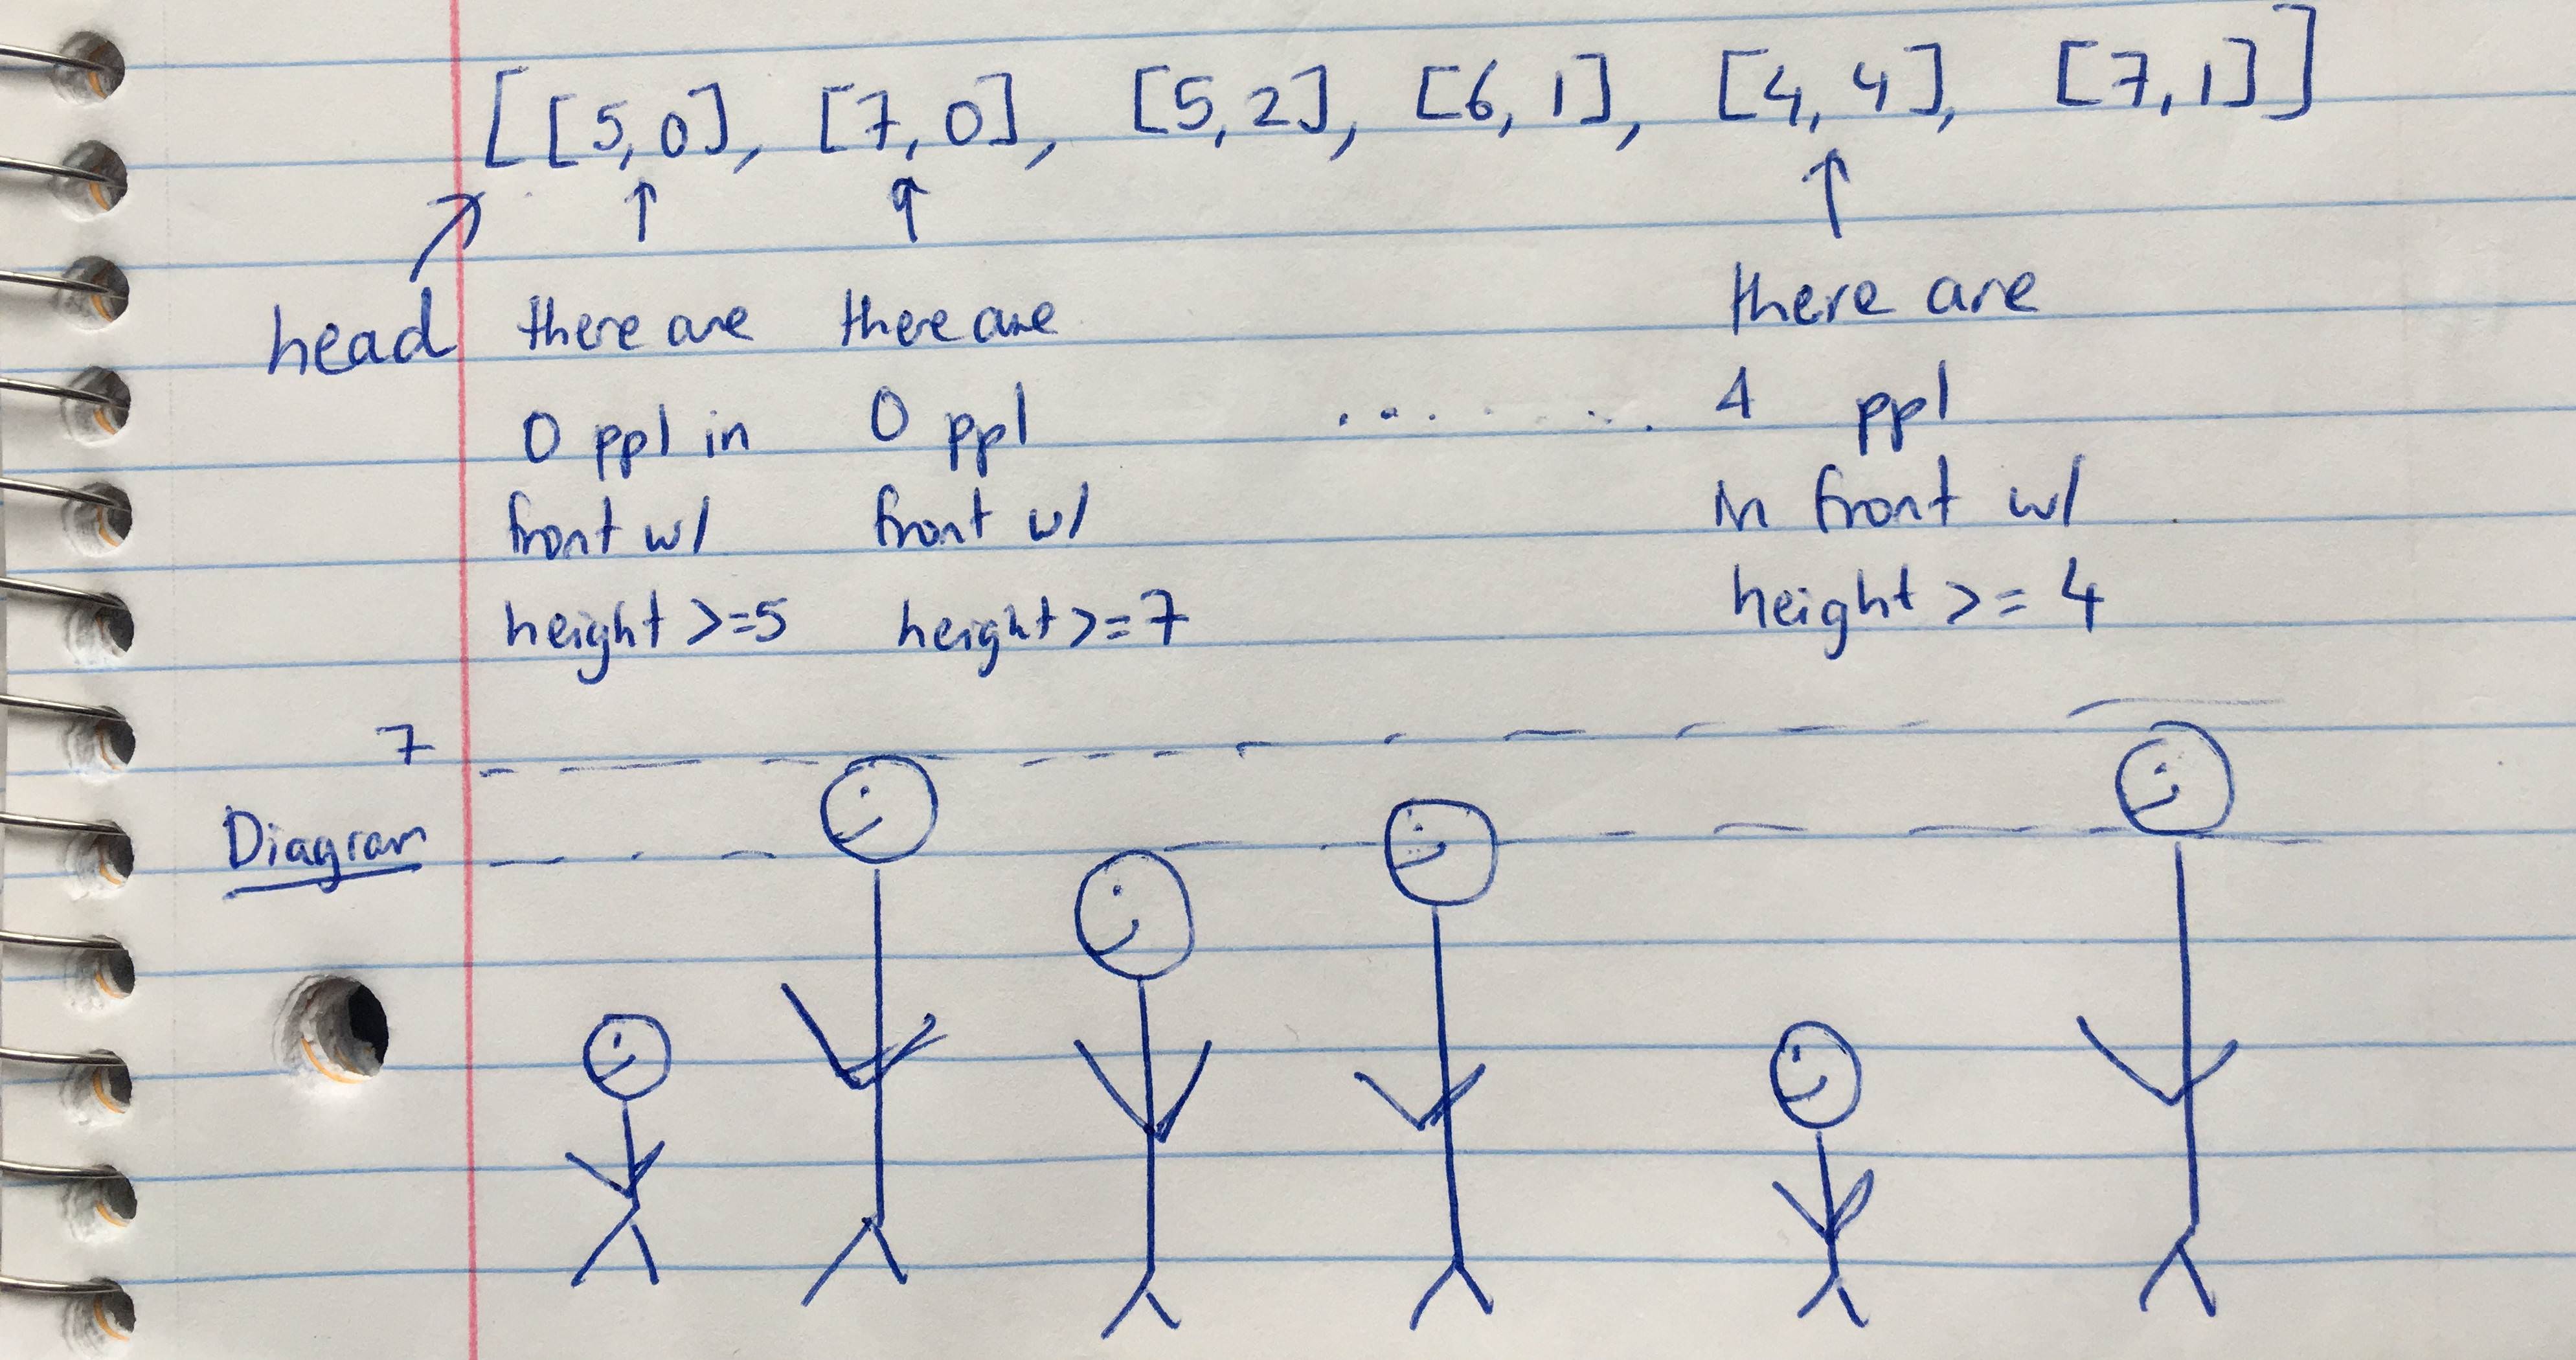 [[5,0], [7,0], [5,2], [6,1], [4,4], [7,1]]
head
there are
0 ppl in
front w/
height >=5
there are
0 ppl
front w/
height >=7
........
there are
4 ppl
in front w/
height >= 4
7
Diagram